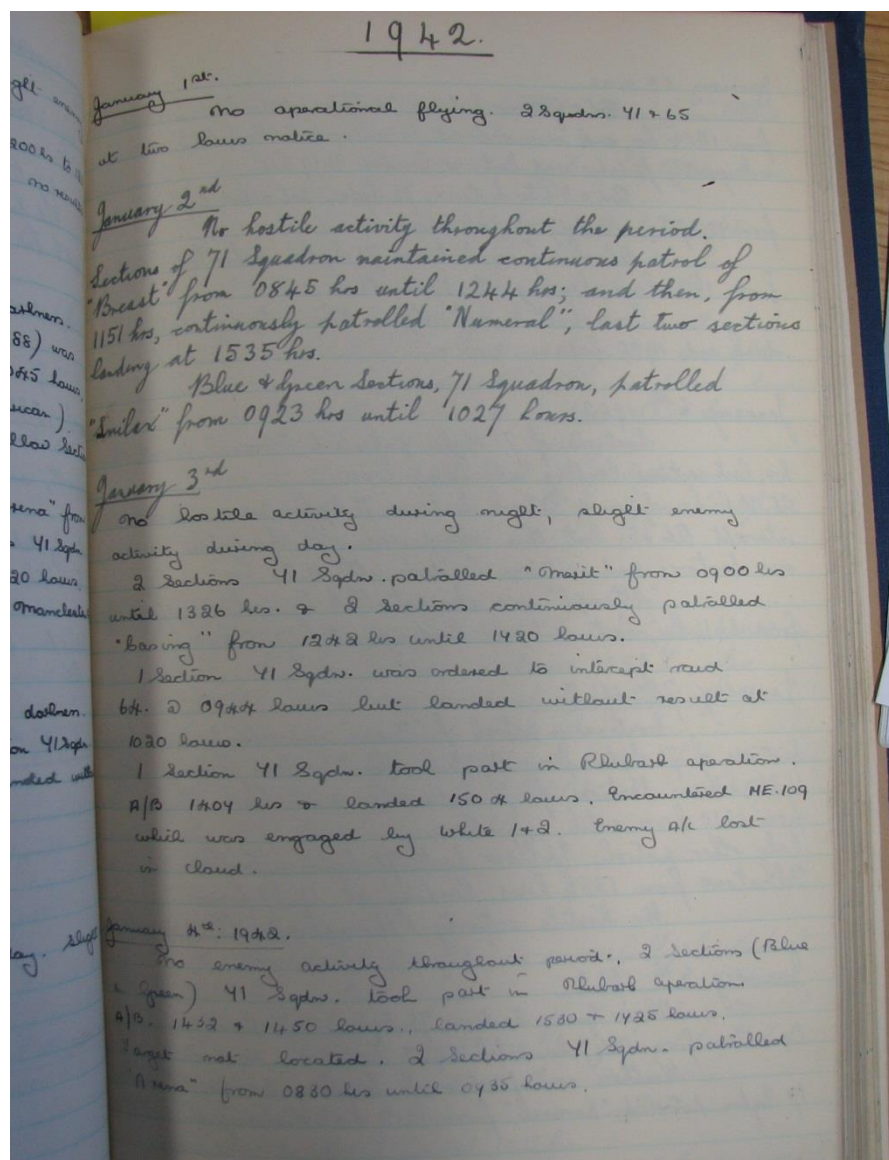 ght enemy
200 hs to
no result
darkness.
88) was
1045 hours
rican).
llow Secti
rena" from
41 Sqdn
20 hours.
Manchester
darknen.
on 41 Sqdn
nded with
lay. Slight
1942.
January 1st.
No operational flying. 2 Sqdns. 41 & 65
at two hours notice.
January 2nd
No hostile activity throughout the period.
Sections of 71 Squadron maintained continuous patrol of
"Breast" from 0845 hrs until 1244 hrs; and then, from
1151 hrs, continuously patrolled "Numeral", last two sections
landing at 1535 hrs.
Blue & Green Sections, 71 Squadron, patrolled
"Smilax" from 0923 hrs until 1027 hours.
January 3rd
No hostile activity during night, slight enemy
activity during day.
2 Sections 41 Sqdn. patrolled "Merit" from 0900 hrs
until 1326 hrs. & 2 Sections continuously patrolled
"basing" from 1242 hrs until 1420 hours.
1 Section 41 Sqdn. was ordered to intercept raid
64. @ 0944 hours but landed without result at
1020 hours.
1 Section 41 Sqdn. took part in Rhubarb operation.
A/B 1404 hrs & landed 1504 hours. Encountered ME.109
which was engaged by White 1+2. Enemy A/c lost
in cloud.
January 4th: 1942.
No enemy activity throughout period. 2 Sections (Blue
& Green) 41 Sqdn. took part in Rhubarb operation
A/B. 1432 & 1450 hours., landed 1530 & 1425 hours.
Target not located. 2 Sections 41 Sqdn. patrolled
"Arena" from 0830 hrs until 0935 hours.